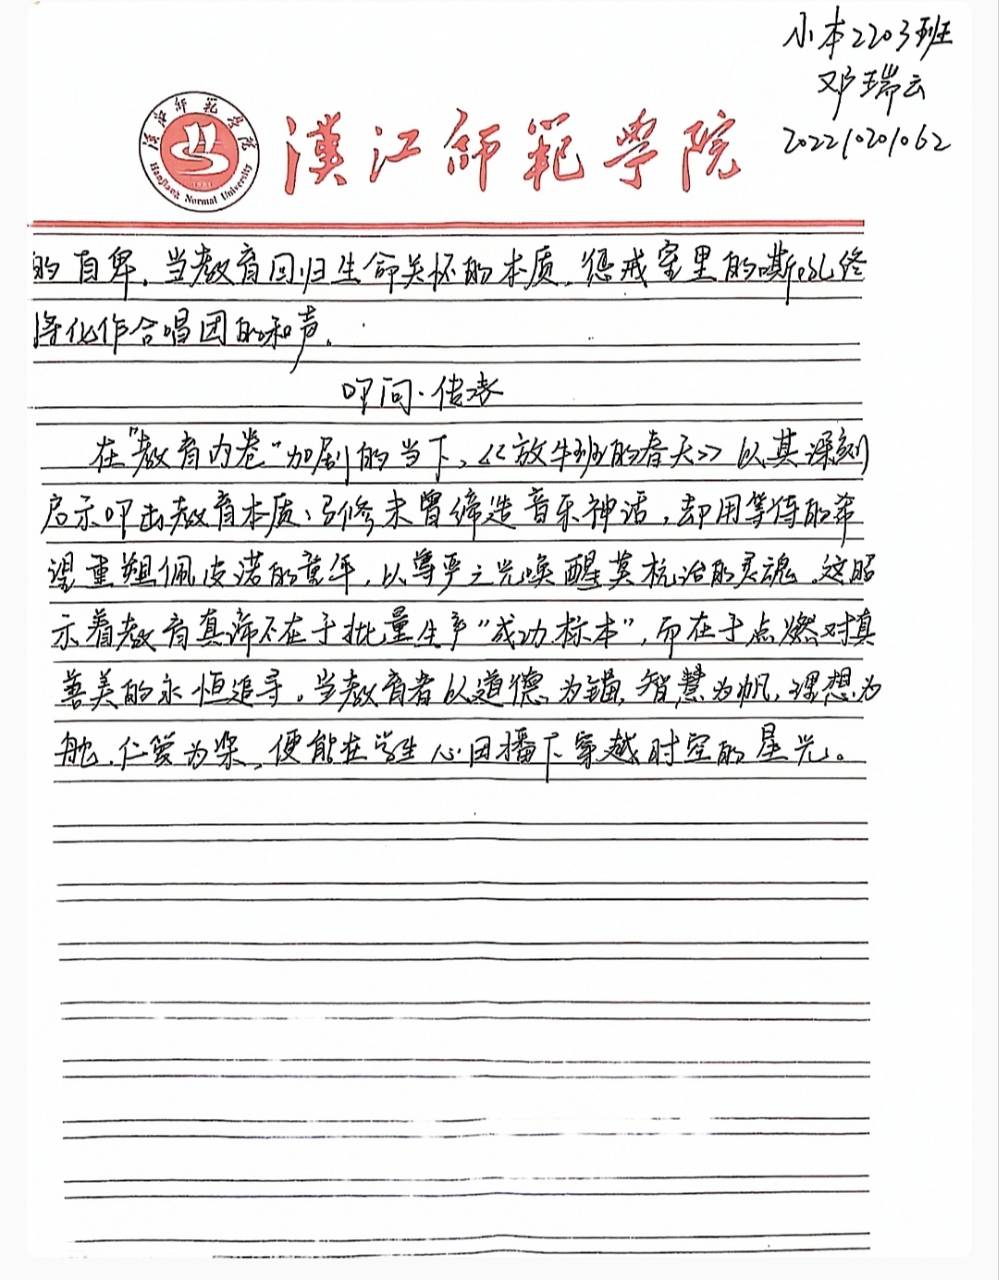 小本2203班
邓瑞云
202210201062
漢江師範學院
漢江師範學院
Hanjiang Normal University
的自卑。当教育回归生命关怀的本质,惩戒室里的嘶吼终
将化作合唱团的和声。
叩问·传承
在"教育内卷"加剧的当下,《放牛班的春天》以其深刻
启示叩击教育本质:马修未曾缔造音乐神话,却用等待的希
望重塑佩皮诺的童年,以尊严之光唤醒莫杭治的灵魂。这昭
示着教育真谛不在于批量生产"成功标本",而在于点燃对真
善美的永恒追寻。当教育者以道德为锚,智慧为帆,理想为
舵,仁爱为桨,便能在学生心田播下穿越时空的星光。